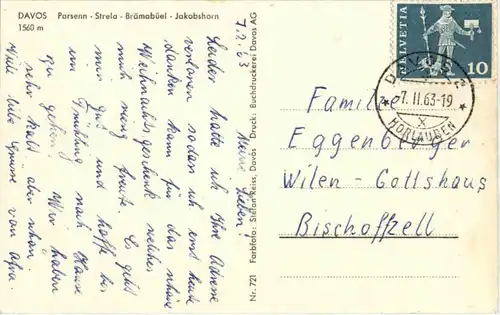 DAVOS Parsenn - Strela - Brämabüel - Jakobshorn
1560 m
7.2.63
Meine Lieben!
Leider hatte ich Ihre Adresse
verloren sodass ich erst heute
danken kann für das schöne
Weihnachtsgeschenk welches
mich riesig freute. Es geht
mir gut und hoffe bis
im Frühling nach Hause
zu gehen. Wir haben
sehr kalt aber schön.
Viele liebe Grüsse von
Nr. 721 Farbfoto: Stefan Reiss, Davos Druck: Buchdruckerei Davos AG
HELVETIA
10
DAVOS 2
-7. II. 63-19
HORLAUBEN
Familie
Eggenberger
Wilen - Gottshaus
Bischofzell